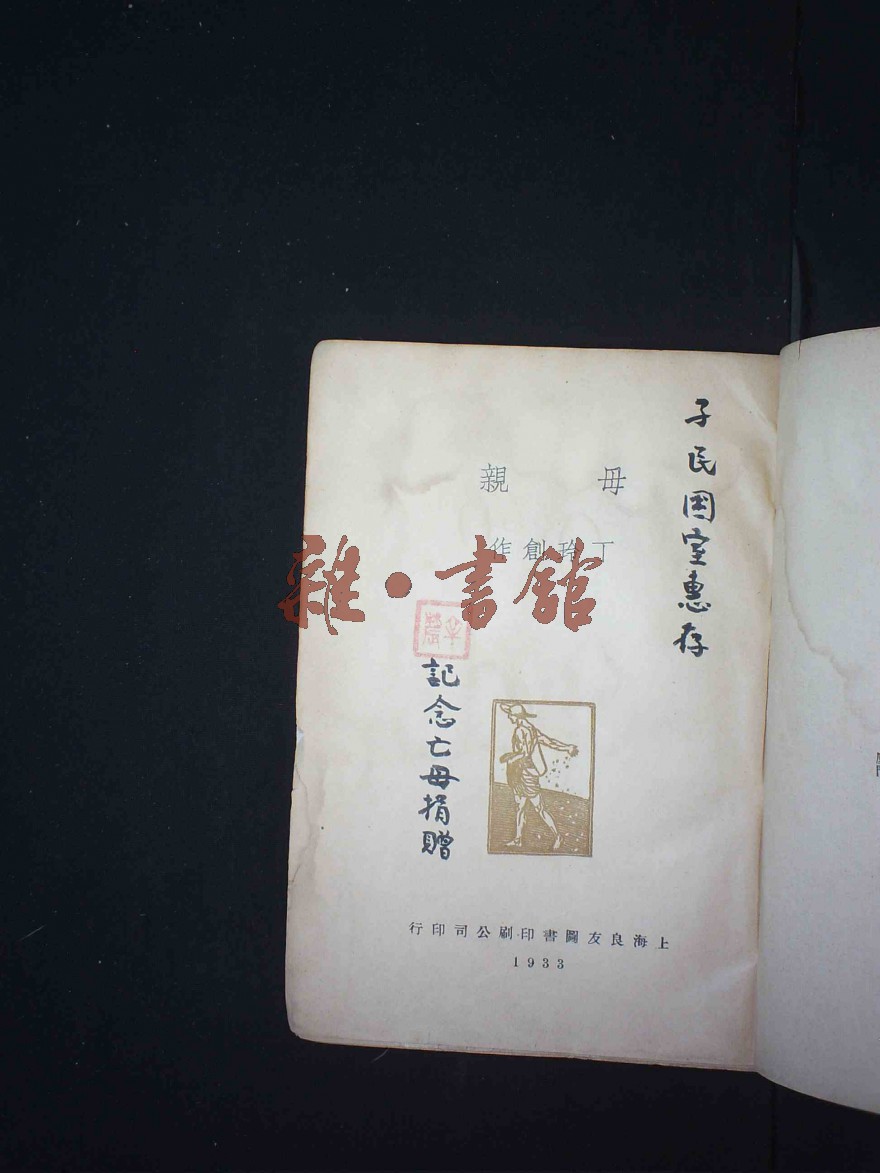 子民圖室惠存
母親
丁玲創作
雜·書館
記念亡母捐贈
上海良友圖書印刷公司印行
1933